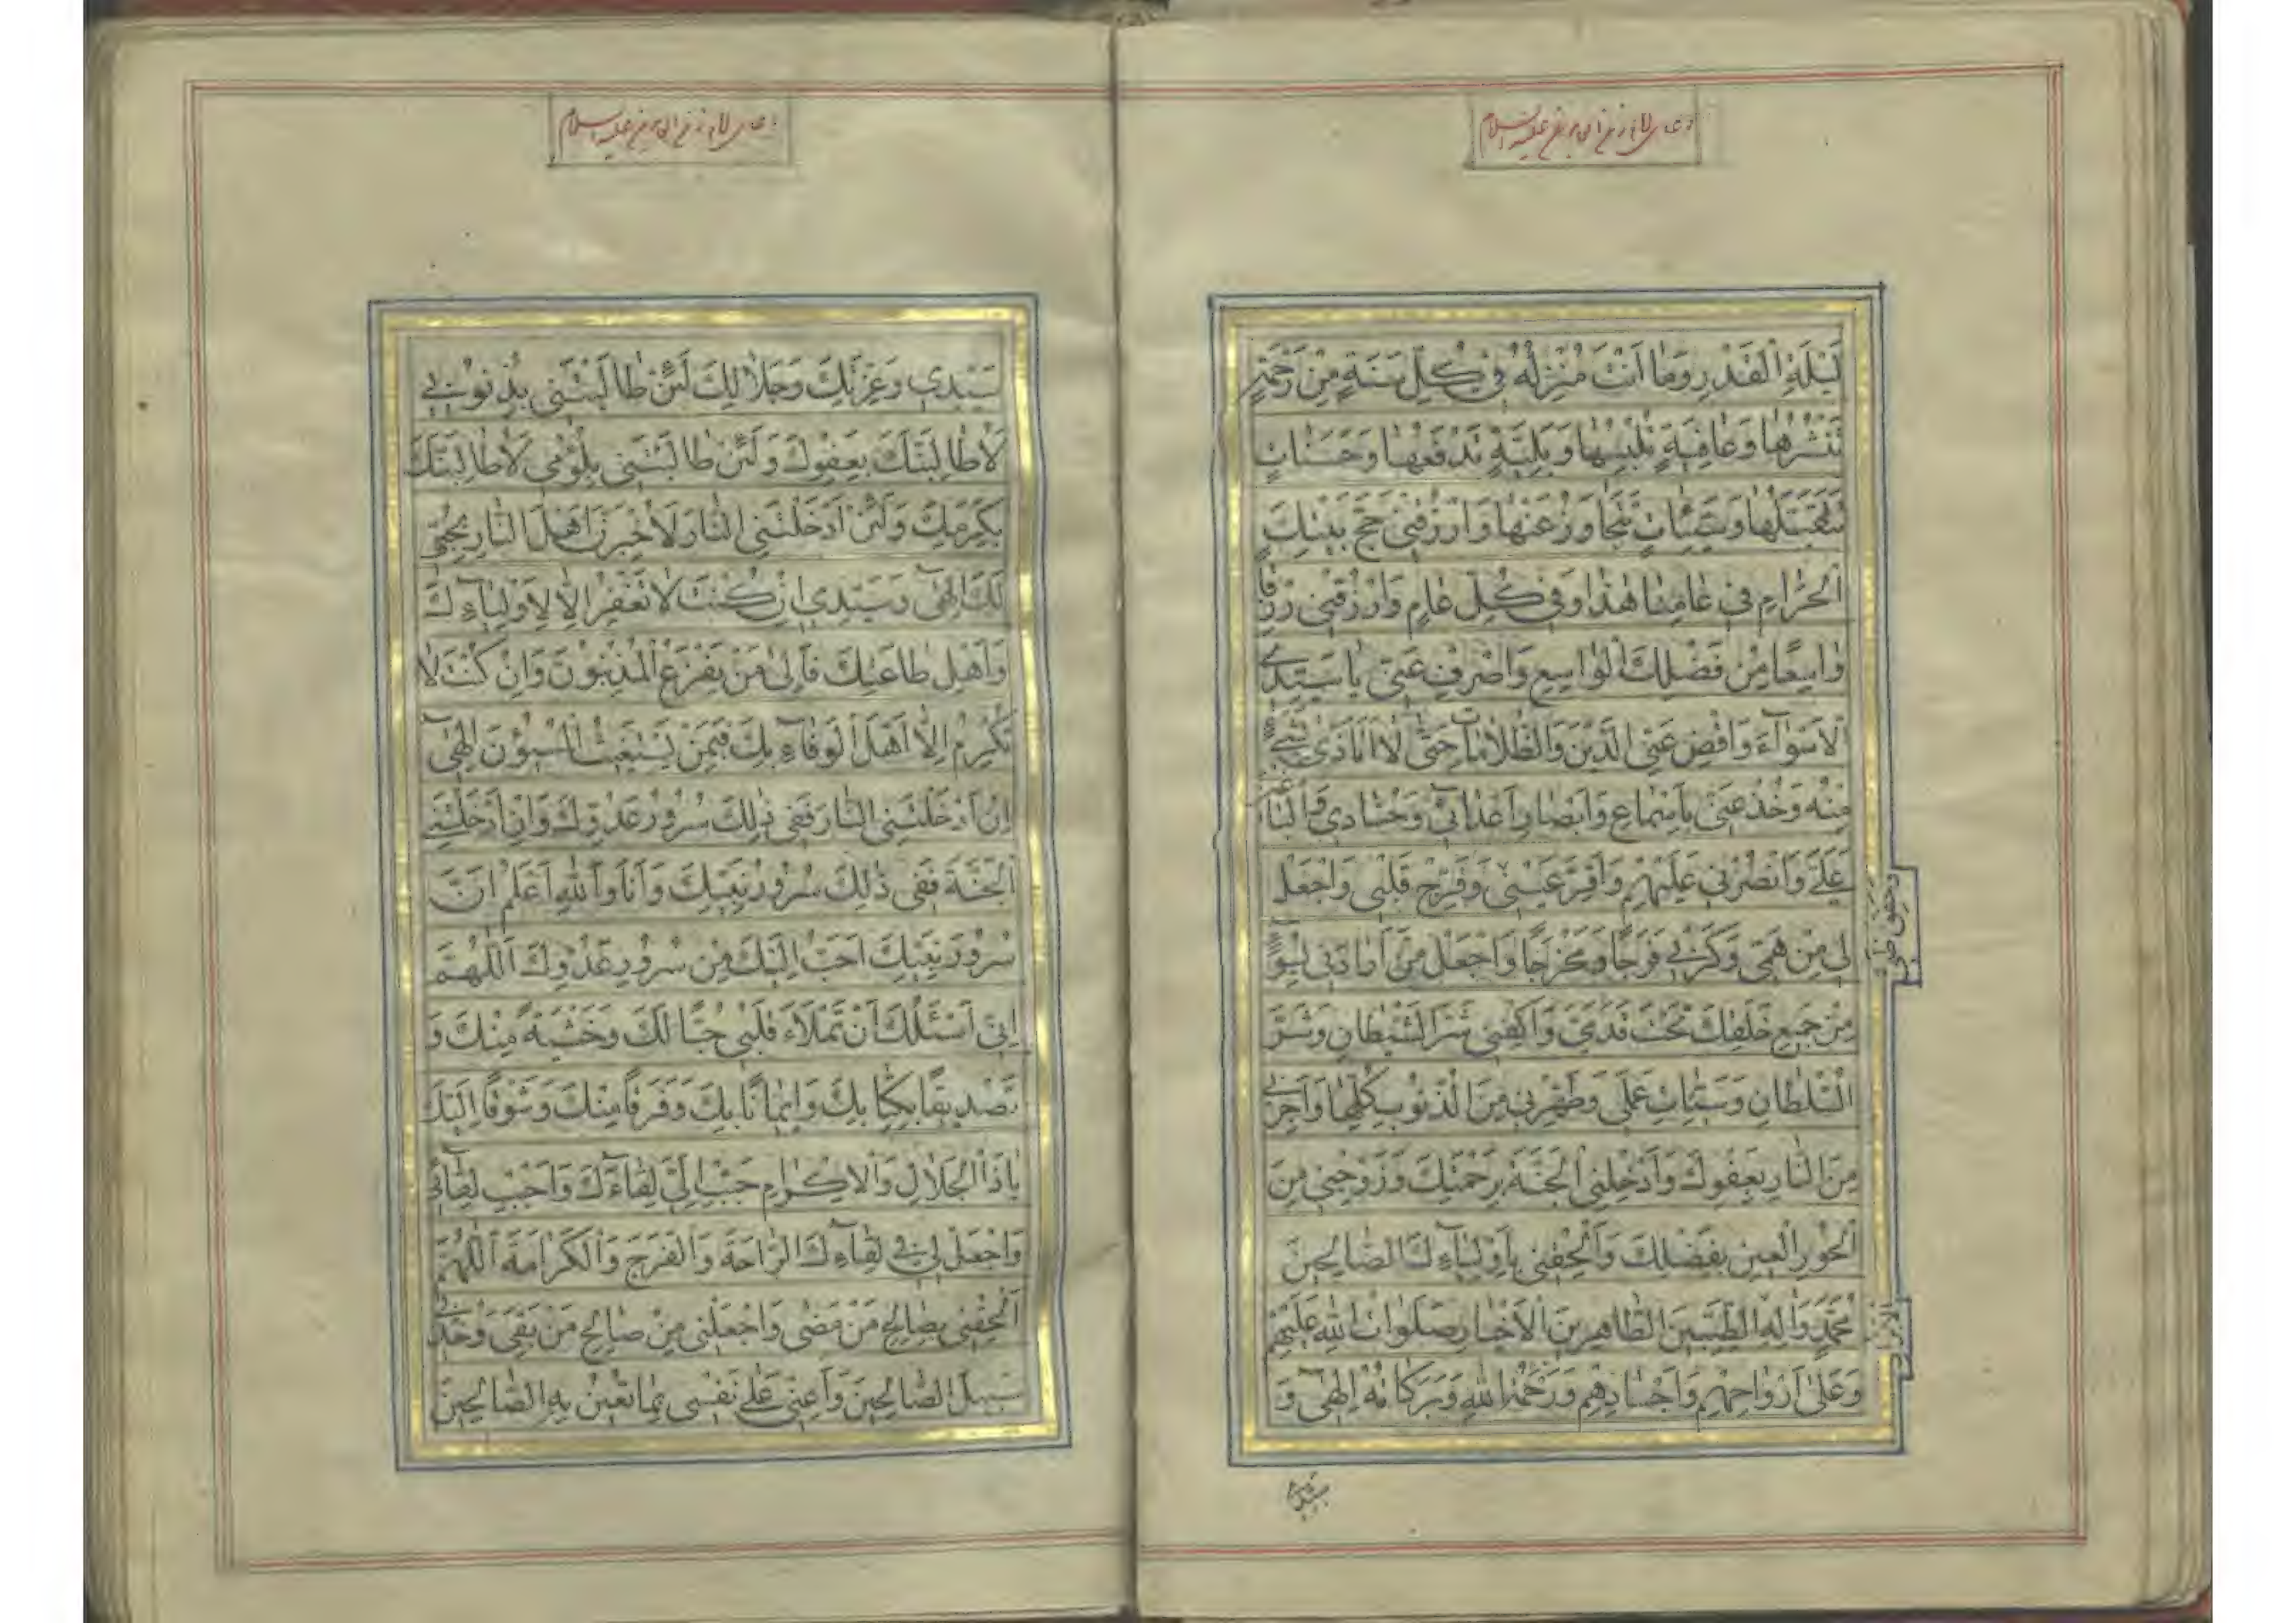 لَيْلَةِ الْقَدْرِ وَمٰا اَنْتَ مُنْزِلُهُ فِي كُلِّ سَنَةٍ مِنْ رَحْمَةٍ
تَنْشُرُهٰا وَعٰافِيَةٍ تُلْبِسُهٰا وَبَلِيَّةٍ تَدْفَعُهٰا وَحَسَنٰاتٍ
تَتَقَبَّلُهٰا وَسَيِّئٰاتٍ تَتَجٰاوَزُ عَنْهٰا وَارْزُقْنِي حَجَّ بَيْتِكَ
الْحَرٰامِ فِي عٰامِنٰا هٰذٰا وَفِي كُلِّ عٰامٍ وَارْزُقْنِي رِزْقًا
وٰاسِعًا مِنْ فَضْلِكَ الْوٰاسِعِ وَاصْرِفْ عَنِّي يٰا سَيِّدِي
الْاَسْوٰآءَ وَاقْضِ عَنِّي الدَّيْنَ وَالظُّلٰامٰاتِ حَتّٰى لٰا اَتَاَذّٰى بِشَيْءٍ
مِنْهُ وَخُذْ عَنِّي بِاَسْمٰاعِ وَاَبْصٰارِ اَعْدٰائِي وَحُسّٰادِي وَالْبٰاغِينَ
عَلَيَّ وَانْصُرْنِي عَلَيْهِمْ وَاَقِرَّ عَيْنِي وَفَرِّحْ قَلْبِي وَاجْعَلْ
لِي مِنْ هَمِّي وَكَرْبِي فَرَجًا وَمَخْرَجًا وَاجْعَلْ مَنْ اَرٰادَنِي بِسُوٓءٍ
مِنْ جَمِيعِ خَلْقِكَ تَحْتَ قَدَمَيَّ وَاكْفِنِي شَرَّ الشَّيْطٰانِ وَشَرَّ
السُّلْطٰانِ وَسَيِّئٰاتِ عَمَلِي وَطَهِّرْنِي مِنَ الذُّنُوبِ كُلِّهٰا وَاَجِرْنِي
مِنَ النّٰارِ بِعَفْوِكَ وَاَدْخِلْنِي الْجَنَّةَ بِرَحْمَتِكَ وَزَوِّجْنِي مِنَ
الْحُورِ الْعِينِ بِفَضْلِكَ وَاَلْحِقْنِي بِاَوْلِيٰآءِكَ الصّٰالِحِينَ
مُحَمَّدٍ وَاٰلِهِ الطَّيِّبِينَ الطّٰاهِرِينَ الْاَخْيٰارِ صَلَوٰاتُ اللّٰهِ عَلَيْهِمْ
وَعَلٰى اَرْوٰاحِهِمْ وَاَجْسٰادِهِمْ وَرَحْمَةُ اللّٰهِ وَبَرَكٰاتُهُ اِلٰهِي وَ
سَيِّدِي
سَيِّدِي وَعِزَّتِكَ وَجَلٰالِكَ لَئِنْ طٰالَبْتَنِي بِذُنُوبِي
لَاُطٰالِبَنَّكَ بِعَفْوِكَ وَلَئِنْ طٰالَبْتَنِي بِلُؤْمِي لَاُطٰالِبَنَّكَ
بِكَرَمِكَ وَلَئِنْ اَدْخَلْتَنِي النّٰارَ لَاُخْبِرَنَّ اَهْلَ النّٰارِ بِحُبِّي
لَكَ اِلٰهِي وَسَيِّدِي اِنْ كُنْتَ لٰا تَغْفِرُ اِلّٰا لِاَوْلِيٰآءِكَ
وَاَهْلِ طٰاعَتِكَ فَاِلٰى مَنْ يَفْزَعُ الْمُذْنِبُونَ وَاِنْ كُنْتَ لٰا
تُكْرِمُ اِلّٰا اَهْلَ الْوَفٰآءِ بِكَ فَبِمَنْ يَسْتَغِيثُ الْمُسِيؤُنَ اِلٰهِي
اِنْ اَدْخَلْتَنِي النّٰارَ فَفِي ذٰلِكَ سُرُورُ عَدُوِّكَ وَاِنْ اَدْخَلْتَنِي
الْجَنَّةَ فَفِي ذٰلِكَ سُرُورُ نَبِيِّكَ وَاَنَا وَاللّٰهِ اَعْلَمُ اَنَّ
سُرُورَ نَبِيِّكَ اَحَبُّ اِلَيْكَ مِنْ سُرُورِ عَدُوِّكَ اَللّٰهُمَّ
اِنِّي اَسْئَلُكَ اَنْ تَمْلَاَءَ قَلْبِي حُبًّا لَكَ وَخَشْيَةً مِنْكَ وَ
تَصْدِيقًا بِكِتٰابِكَ وَاِيمٰانًا بِكَ وَفَرَقًا مِنْكَ وَشَوْقًا اِلَيْكَ
يٰا ذَا الْجَلٰالِ وَالْاِكْرٰامِ حَبِّبْ اِلَيَّ لِقٰآءَكَ وَاَحْبِبْ لِقٰآئِي
وَاجْعَلْ لِي فِي لِقٰآءِكَ الرّٰاحَةَ وَالْفَرَجَ وَالْكَرٰامَةَ اَللّٰهُمَّ
اَلْحِقْنِي بِصٰالِحِ مَنْ مَضٰى وَاجْعَلْنِي مِنْ صٰالِحِ مَنْ بَقِيَ وَخُذْ بِي
سَبِيلَ الصّٰالِحِينَ وَاَعِنِّي عَلٰى نَفْسِي بِمٰا تُعِينُ بِهِ الصّٰالِحِينَ